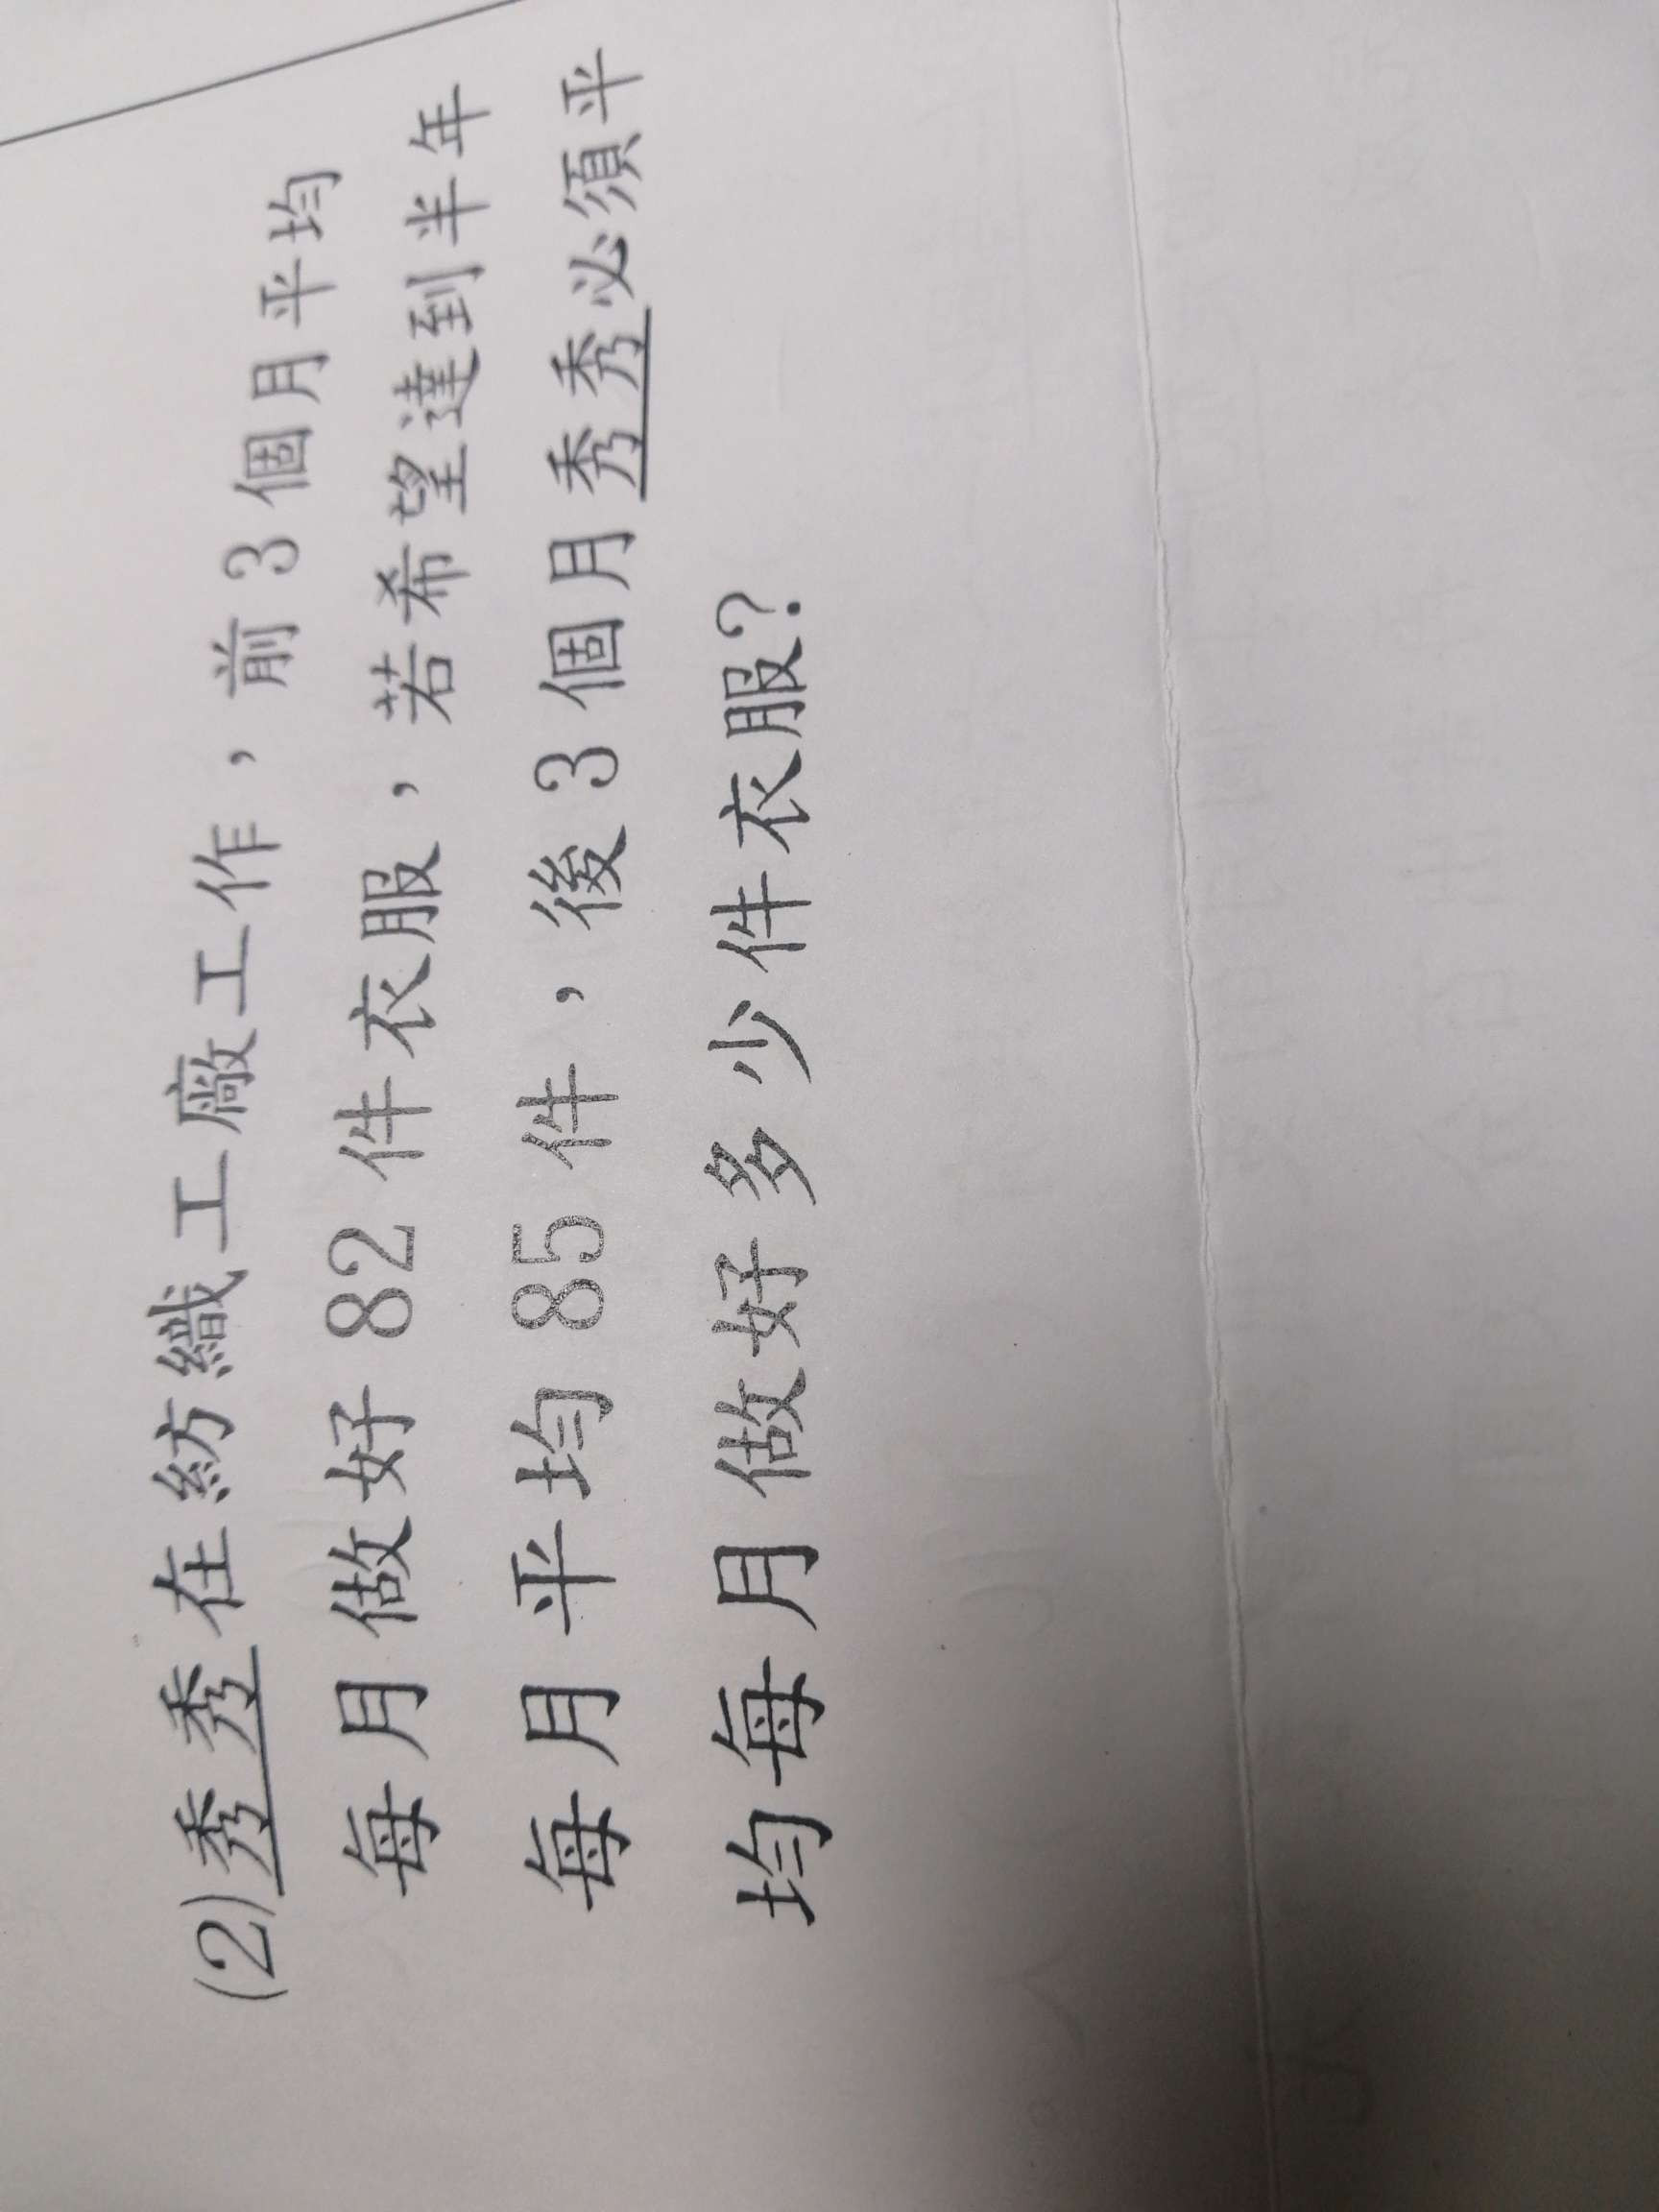 (2)秀秀在紡織工廠工作，前3個月平均
每月做好82件衣服，若希望達到半年
每月平均85件，後3個月秀秀必須平
均每月做好多少件衣服？